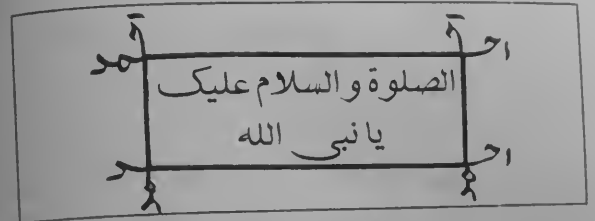 احـ ـمد
الصلوة و السلام علیک
یا نبی الله
احـ ـد